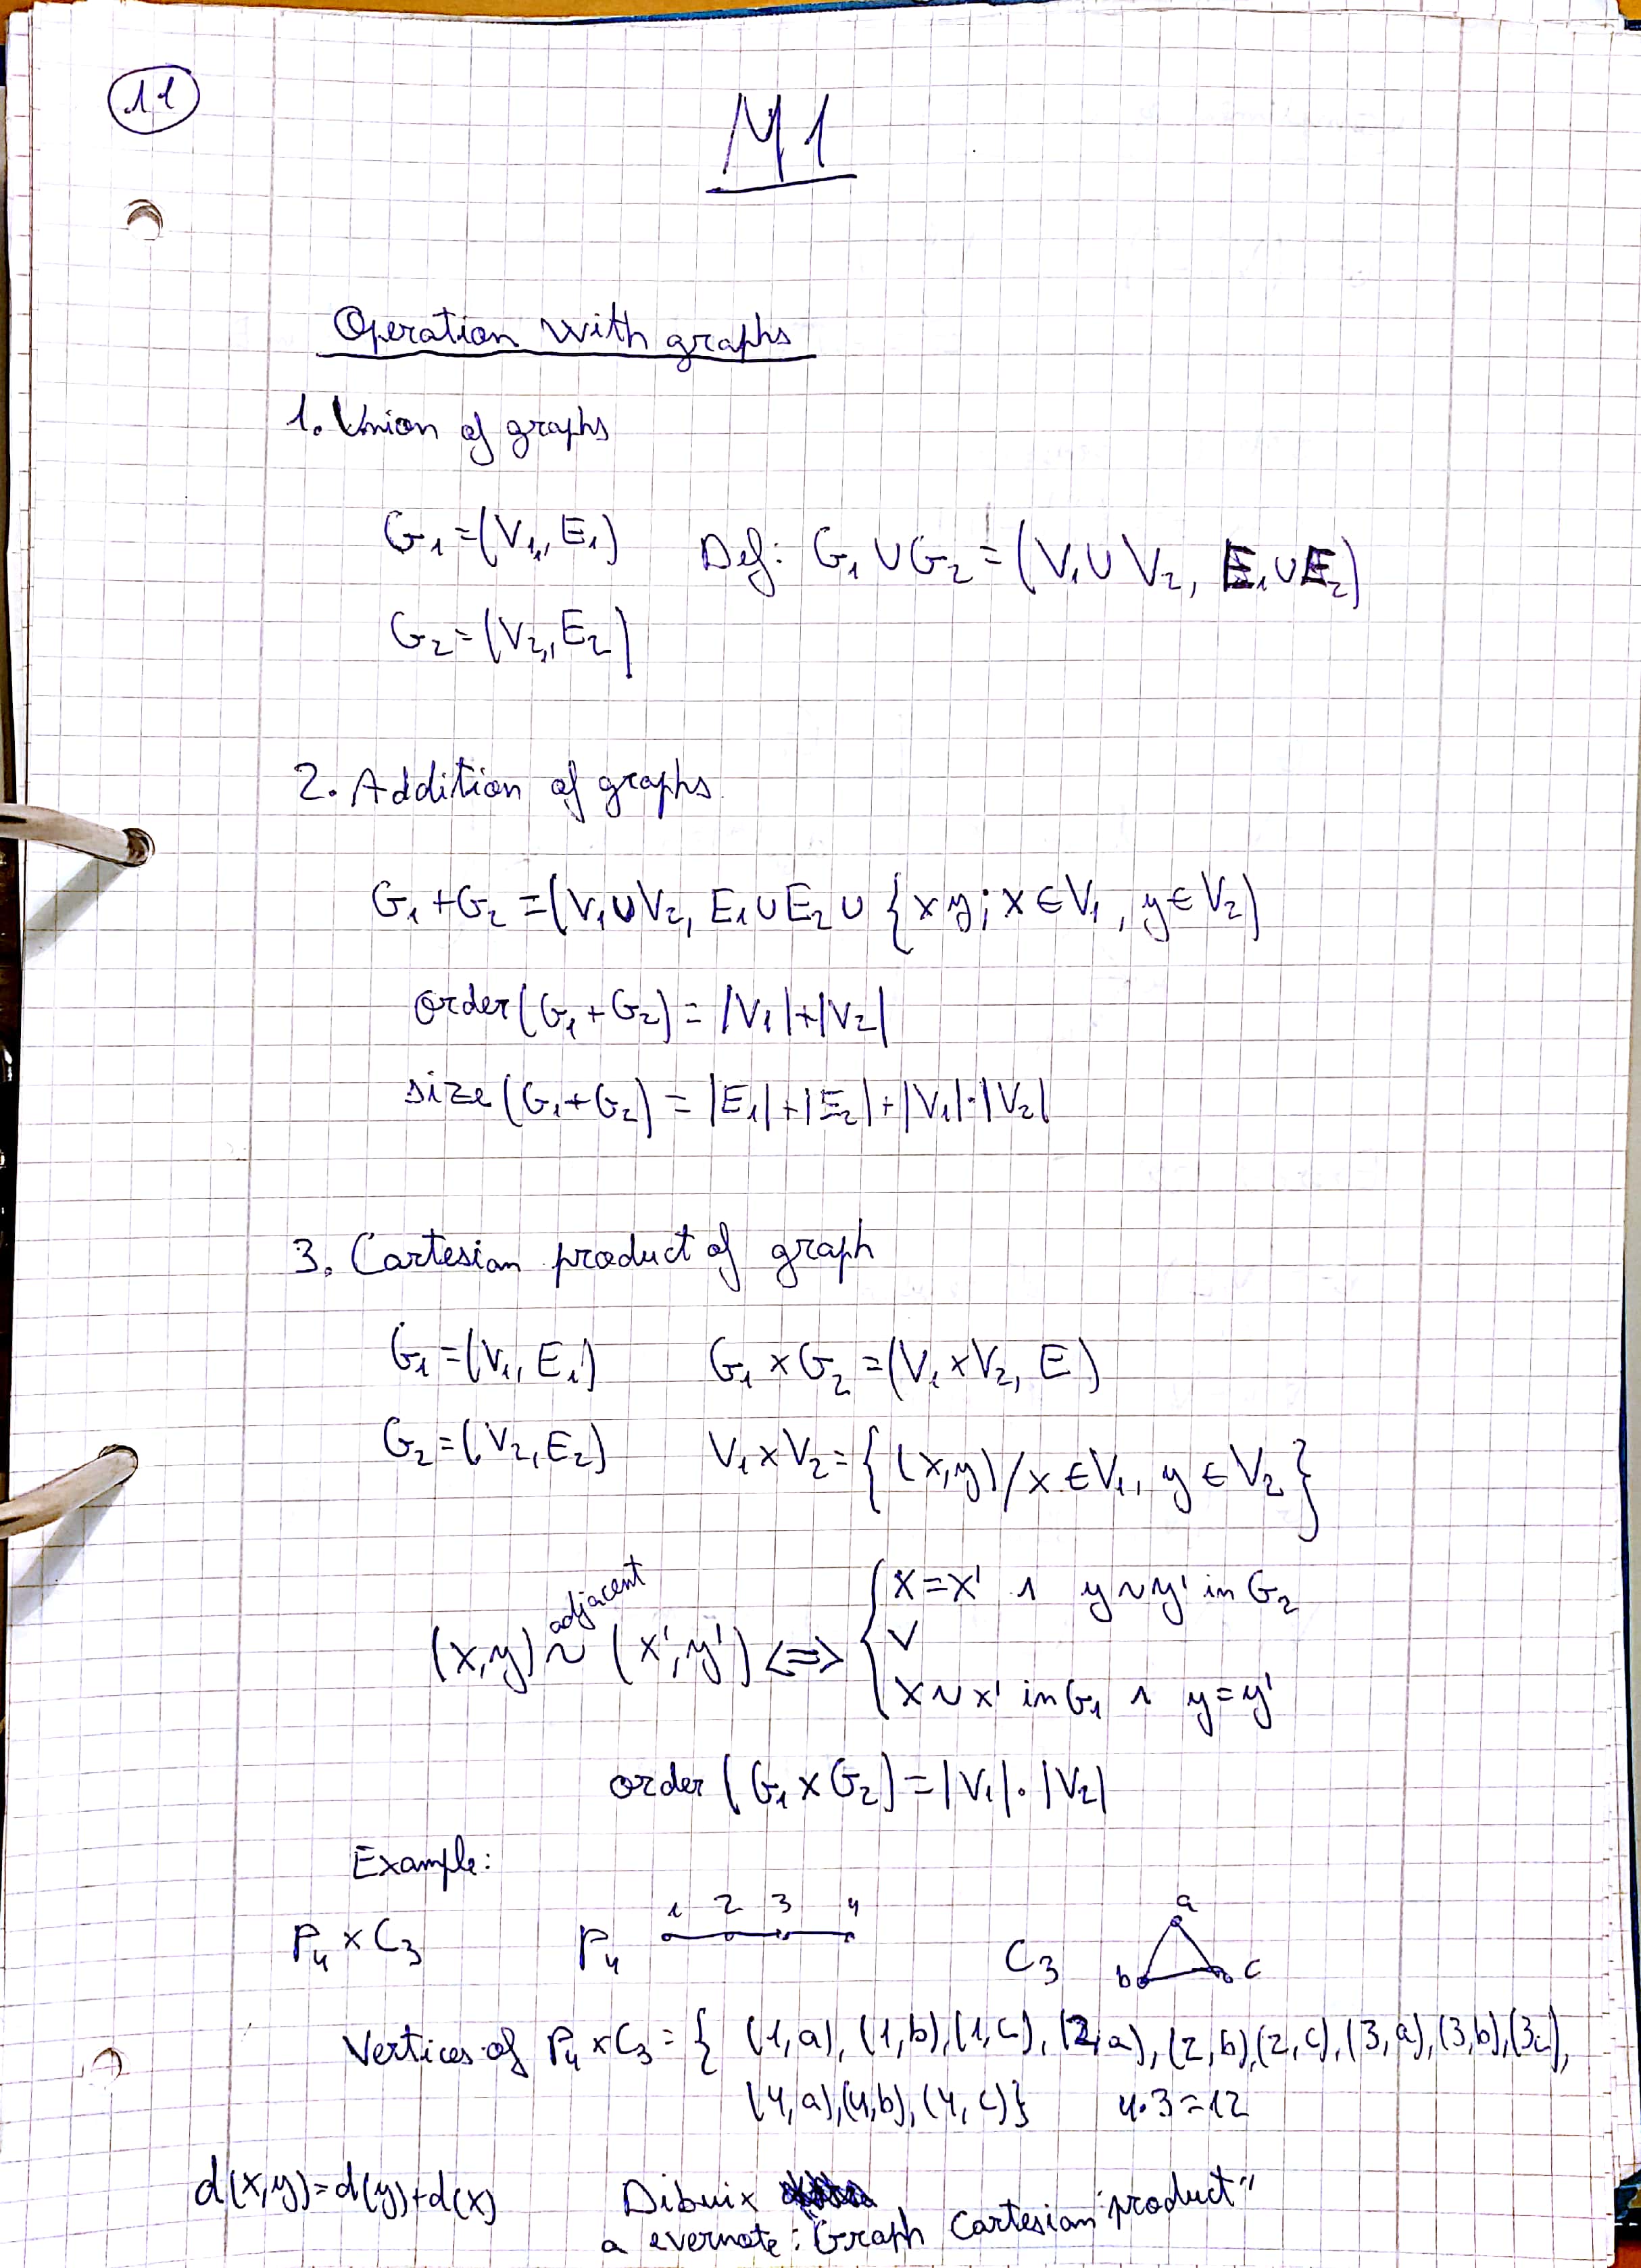 11
M1
Operation with graphs
1. Union of graphs
G₁=(V₁,E₁) Def: G₁∪G₂=(V₁∪V₂, E₁∪E₂)
G₂=(V₂,E₂)
2. Addition of graphs
G₁+G₂=(V₁∪V₂, E₁∪E₂∪{xy; x∈V₁, y∈V₂)
order(G₁+G₂)=|V₁|+|V₂|
size(G₁+G₂)=|E₁|+|E₂|+|V₁|·|V₂|
3. Cartesian product of graph
G₁=(V₁,E₁) G₁×G₂=(V₁×V₂, E)
G₂=(V₂,E₂) V₁×V₂={(x,y)/x∈V₁, y∈V₂}
adjacent
x=x' ∧ y~y' in G₂
(x,y)~(x',y')<=>{ ∨
x~x' in G₁ ∧ y=y'
order(G₁×G₂)=|V₁|·|V₂|
Example:
P₄×C₃ P₄ 1 2 3 4 C₃ a b c
Vertices of P₄×C₃={ (1,a), (1,b),(1,c), (2,a), (2,b),(2,c),(3,a),(3,b),(3c),
(4,a),(4,b),(4,c)} 4·3=12
d(x,y)=d(y)+d(x) Dibuix
a evernote: "Graph Cartesian product"